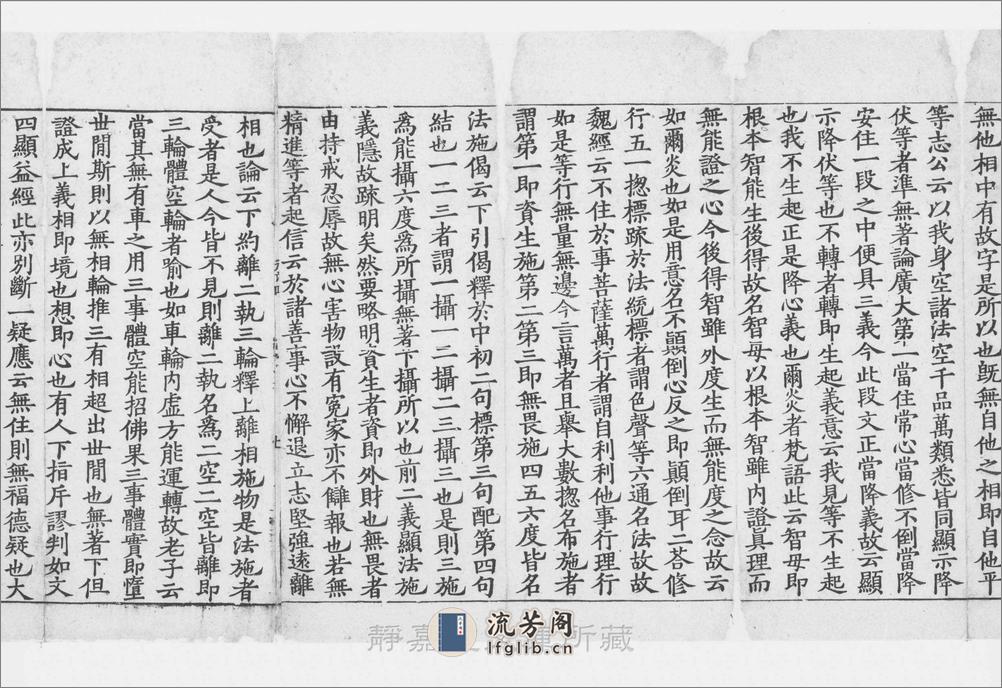 無他相中有故字是所以也既無自他之相即自他平
等志公云以我身空諸法空千品萬類悉皆同顯示降
伏等者準無著論廣大第一當住常心當修不倒當降
安住一段之中便具三義今此段文正當降義故云顯
示降伏等也不轉者轉即生起義意云我見等不生起
也我不生起正是降心義也爾炎者梵語此云智母即
根本智能生後得故名智母以根本智雖內證真理而
無能證之心今後得智雖外度生而無能度之念故云
如爾炎也如是用意名不顛倒心反之即顛倒耳二荅修
行五一揔標疏於法統標者謂色聲等六通名法故故
魏經云不住於事菩薩萬行者謂自利利他事行理行
如是等行無量無邊今言萬者且舉大數揔名布施者
謂第一即資生施第二第三即無畏施四五六度皆名
法施偈云下引偈釋於中初二句標第三句配第四句
結也一二三者謂一攝一二攝二三攝三也是則三施
為能攝六度為所攝無著下攝所以也前二義顯法施
義隱故疏明矣然要略明資生者資即外財也無畏者
由持戒忍辱故無心害物設有冤家亦不讎報也若無
精進等者起信云於諸善事心不懈退立志堅強遠離
相也論云下約離二執三輪釋上離相施物是法施者
受者是人今皆不見則離二執名為二空二空皆離即
三輪體空輪者喻也如車輪內虛方能運轉故老子云
當其無有車之用三事體空能招佛果三事體實即墮
世間斯則以無相輪推三有相超出世間也無著下但
證成上義相即境也想即心也有人下指斥謬判如文
四顯益經此亦別斷一疑應云無住則無福德疑也大
流芳阁
lfglib.cn
靜嘉 所藏